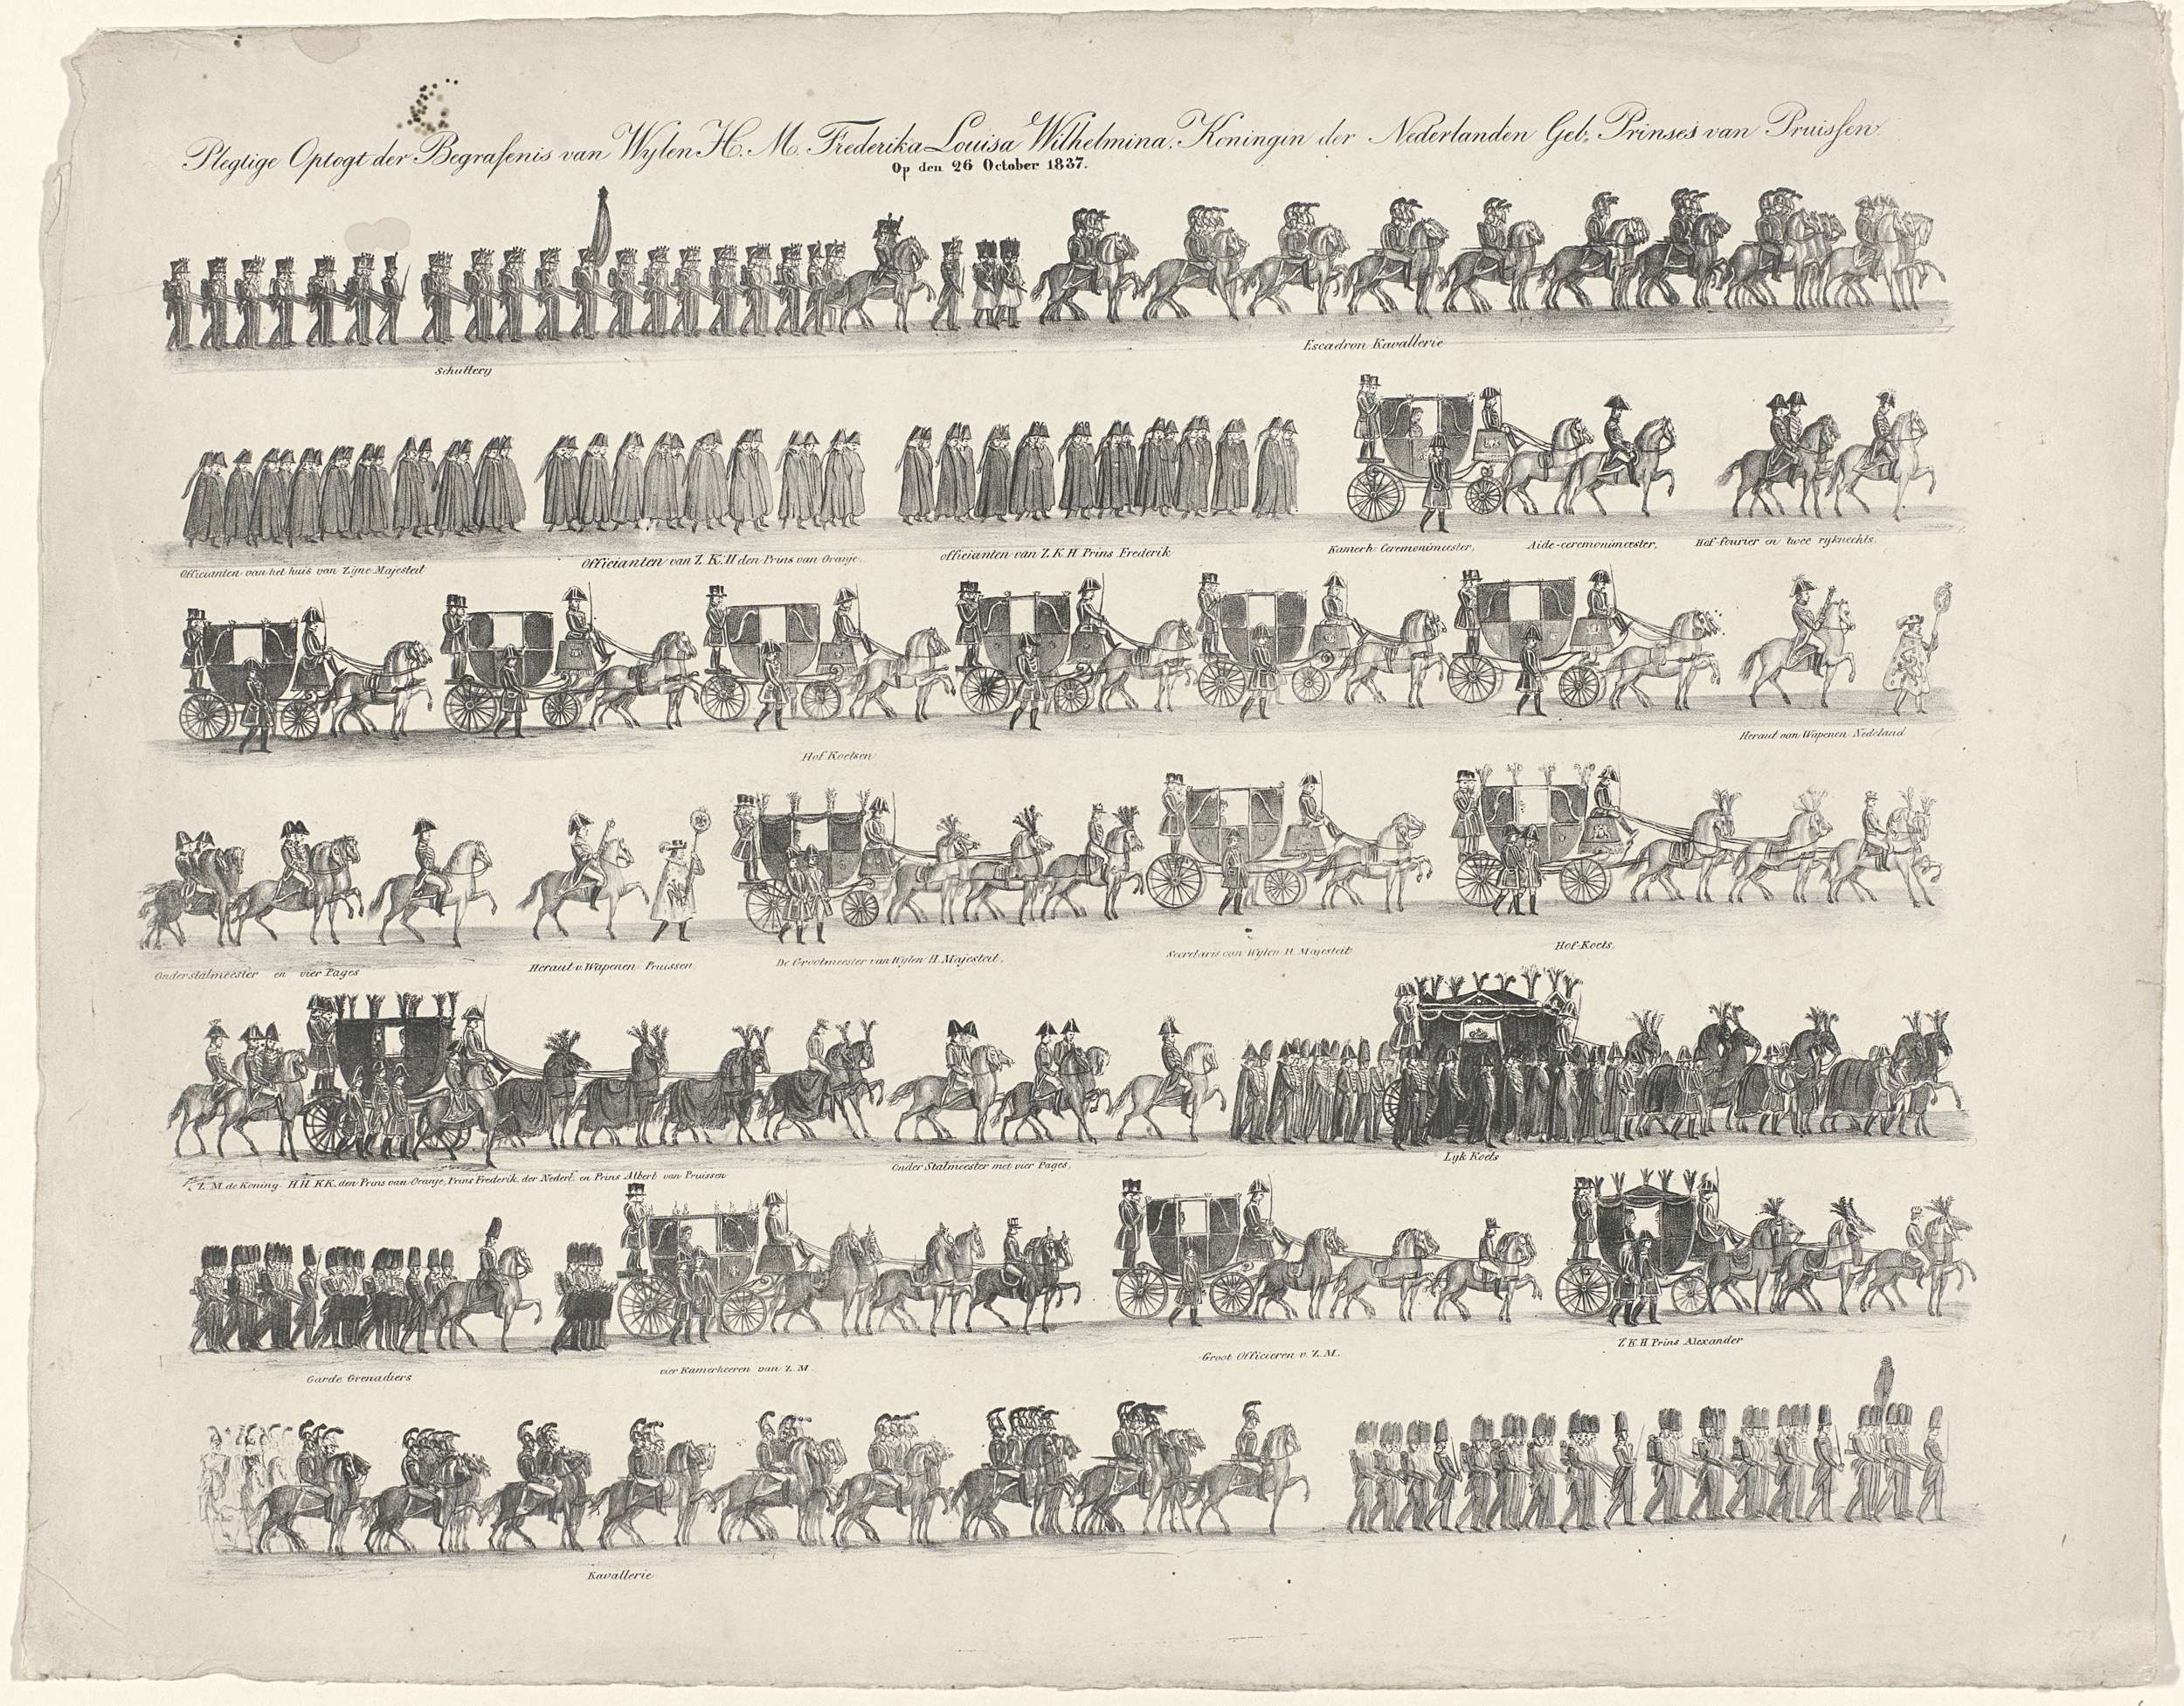 Plegtige Optogt der Begrafenis van Wylen H. M. Frederika Louisa Wilhelmina, Koningin der Nederlanden Geb, Prinses van Pruissen.
Op den 26 October 1837.
Schuttery
Escadron Kavallerie
Officianten van het huis van Zijne Majesteit
Officianten van Z. K. H den Prins van Oranje.
officianten van Z. K. H Prins Frederik
Kamerh: Ceremonimeester,
Aide-ceremonimeester,
Hof-fourier en twee ryknechts.
Hof Koetsen
Heraut van Wapenen Nedeland
Onderstalmeester en vier Pages
Heraut v. Wapenen Pruissen
De Grootmeester van Wylen H. Majesteit,
Secretaris van Wylen H. Majesteit
Hof-Koets,
Z. M. de Koning. H.H. KK. den Prins van Oranje, Prins Frederik der Nederl. en Prins Albert van Pruissen
Onder Stalmeester met vier Pages,
Lyk Koets
Garde Grenadiers
vier Kamerheeren van Z. M.
Groot Officieren v. Z. M.
Z K H Prins Alexander
Kavallerie